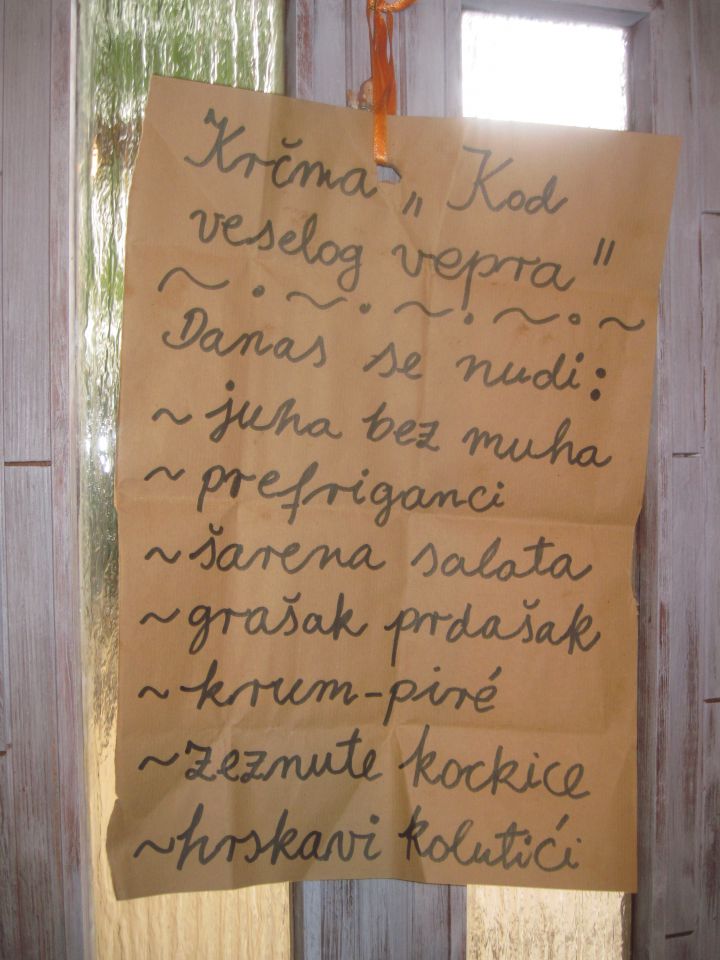 Krčma „Kod
veselog vepra"
~ • ~ • ~ • ~ • ~
Danas se nudi:
~ juha bez muha
~ prefriganci
~ šarena salata
~ grašak prdašak
~ krum-piré
~ zeznute kockice
~ hrskavi kolutići